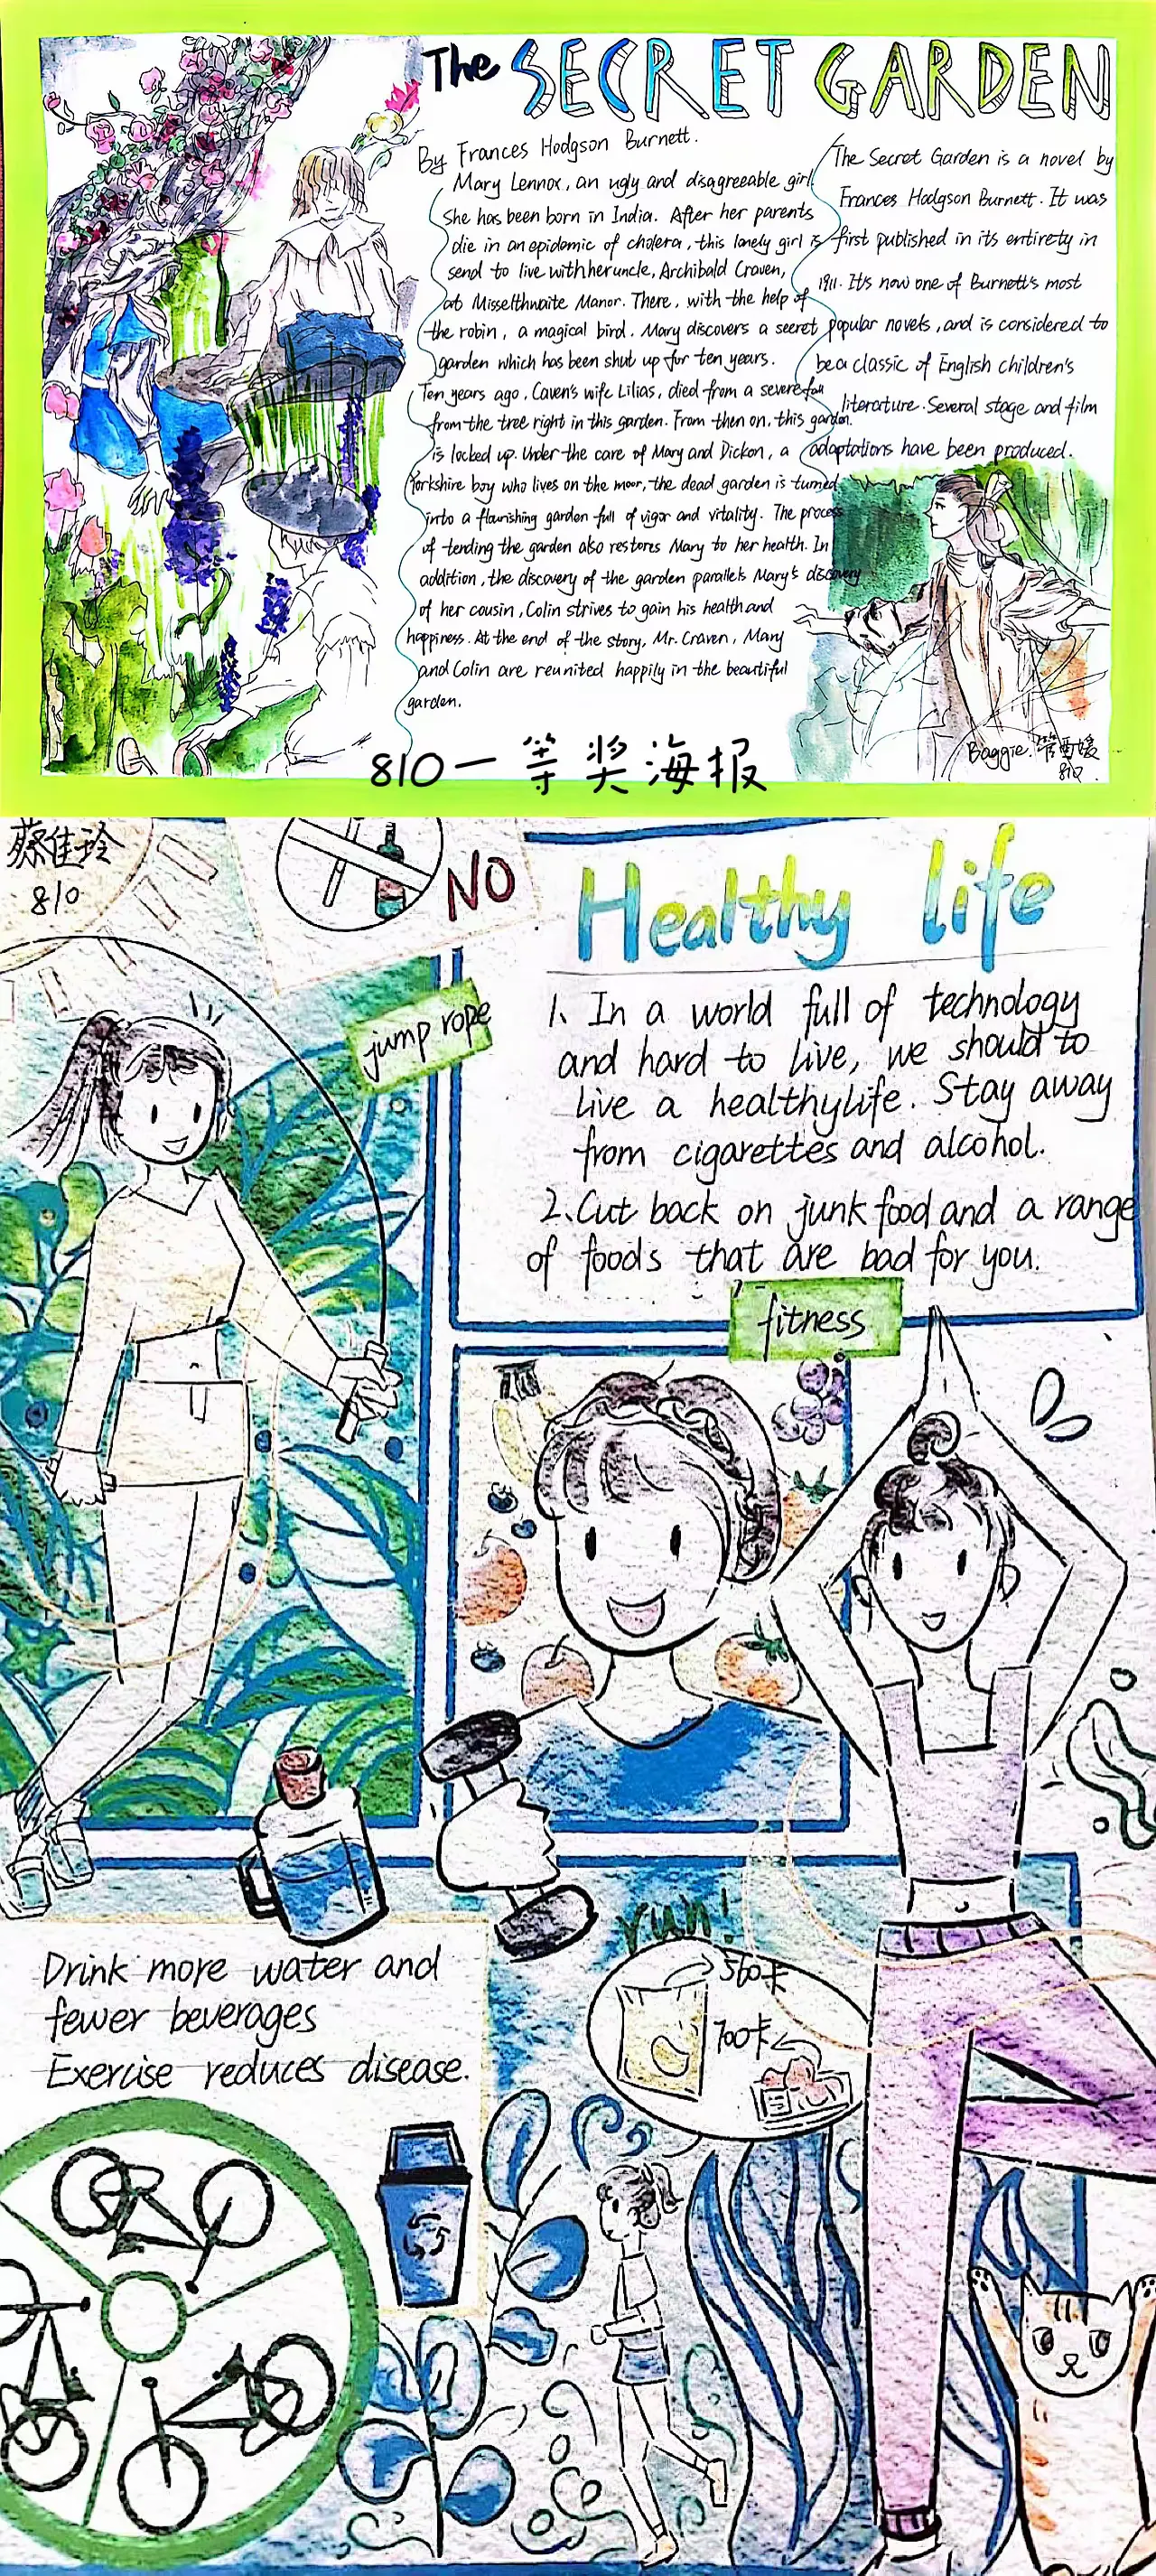 The SECRET GARDEN
By Frances Hodgson Burnett.
Mary Lennox, an ugly and disagreeable girl.
She has been born in India. After her parents
die in an epidemic of cholera, this lonely girl is
send to live with her uncle, Archibald Craven,
at Misselthwaite Manor. There, with the help of
the robin, a magical bird. Mary discovers a secret
garden which has been shut up for ten years.
Ten years ago, Caven's wife Lilias, died from a severe fall
from the tree right in this garden. From then on, this garden
is locked up. Under the care of Mary and Dickon, a
Yorkshire boy who lives on the moor, the dead garden is turned
into a flourishing garden full of vigor and vitality. The process
of tending the garden also restores Mary to her health. In
addition, the discovery of the garden parallels Mary's discovery
of her cousin, Colin strives to gain his health and
happiness. At the end of the story, Mr. Craven, Mary
and Colin are reunited happily in the beautiful
garden.
The Secret Garden is a novel by
Frances Hodgson Burnett. It was
first published in its entirety in
1911. It's now one of Burnett's most
popular novels, and is considered to
be a classic of English children's
literature. Several stage and film
adaptations have been produced.
Baggie.
810.
810一等奖海报
蔡佳玲
810
NO
Healthy life
jump rope
1、In a world full of technology
and hard to live, we should to
live a healthy life. Stay away
from cigarettes and alcohol.
2、Cut back on junk food and a range
of foods that are bad for you.
fitness
run!
560卡
700卡
Drink more water and
fewer beverages
Exercise reduces disease.